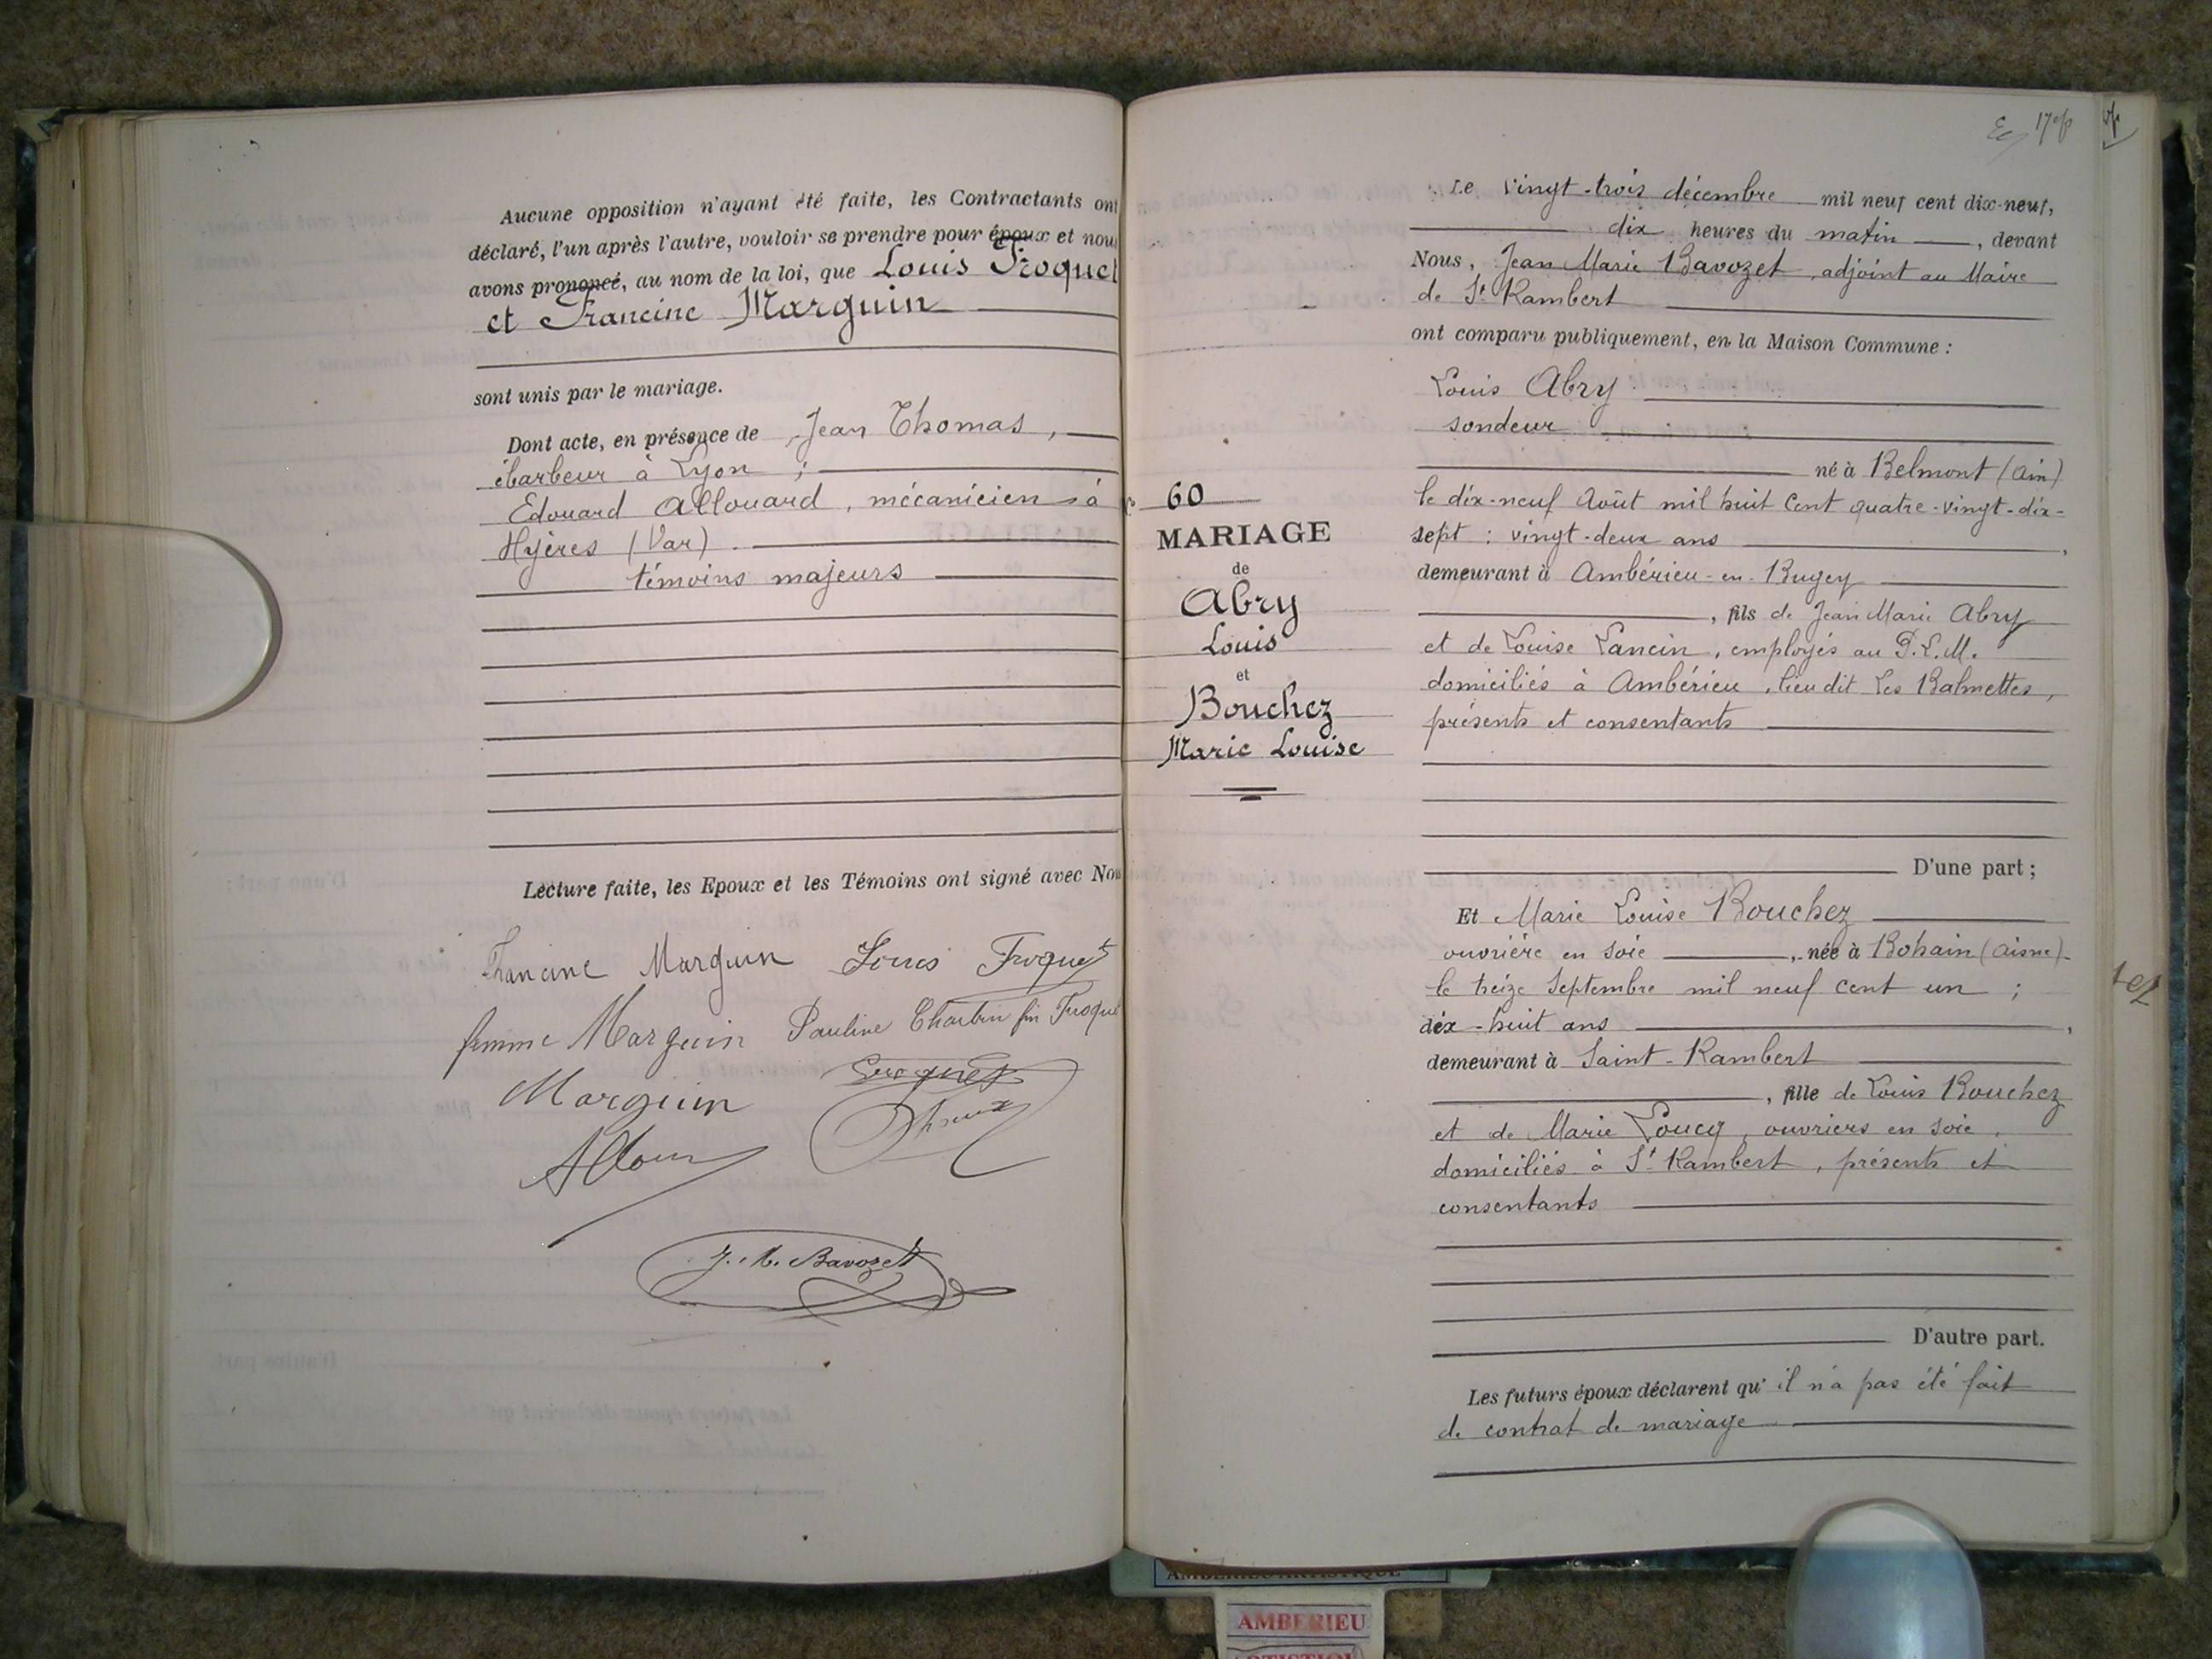 Aucune opposition n'ayant été faite, les Contractants ont
déclaré, l'un après l'autre, vouloir se prendre pour époux et nous
avons prononcé, au nom de la loi, que Louis Froquet
et Francine Marguin
sont unis par le mariage.
Dont acte, en présence de Jean Thomas,
ébarbeur à Lyon ;
Edouard Allouard, mécanicien à
Hyères (Var).
témoins majeurs
Lecture faite, les Epoux et les Témoins ont signé avec Nou
Francine Marguin Louis Froquet
femme Marguin Pauline Froque
Marguin
J. M. Bavozet
Le vingt-trois décembre mil neuf cent dix-neuf,
dix heures du matin, devant
Nous, Jean Marie Bavozet, adjoint au Maire
de St Rambert
ont comparu publiquement, en la Maison Commune :
Louis Abry
sondeur
né à Belmont (Ain)
le dix-neuf Août mil huit cent quatre-vingt-dix-
sept : vingt-deux ans,
demeurant à Ambérieu-en-Bugey
, fils de Jean Marie Abry
et de Louise Lancin, employés au P.L.M.
domiciliés à Ambérieu, lieu dit Les Balmettes,
présents et consentants
60
MARIAGE
de
Abry
Louis
et
Bouchez
Marie Louise
D'une part ;
Et Marie Louise Bouchez
ouvrière en soie, née à Bohain (Aisne)
le treize Septembre mil neuf cent un ;
dix-huit ans,
demeurant à Saint-Rambert
, fille de Louis Bouchez
et de Marie Loucq, ouvriers en soie,
domiciliés à St Rambert, présents et
consentants
D'autre part.
Les futurs époux déclarent qu'il n'a pas été fait
de contrat de mariage
AMBERIEU ARTISTIQUE
AMBERIEU